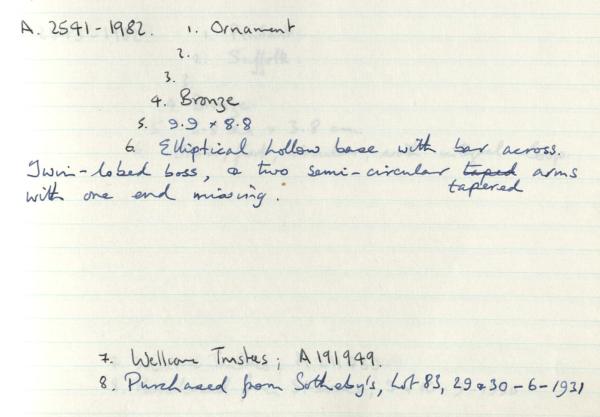 A. 2541-1982. 1. Ornament
2.
3.
4. Bronze
5. 9.9 × 8.8
6. Elliptical hollow base with bar across.
Twin-lobed boss, & two semi-circular taped arms
tapered
with one end missing.
7. Wellcome Trustees; A191949.
8. Purchased from Sotheby's, Lot 83, 29 & 30-6-1931